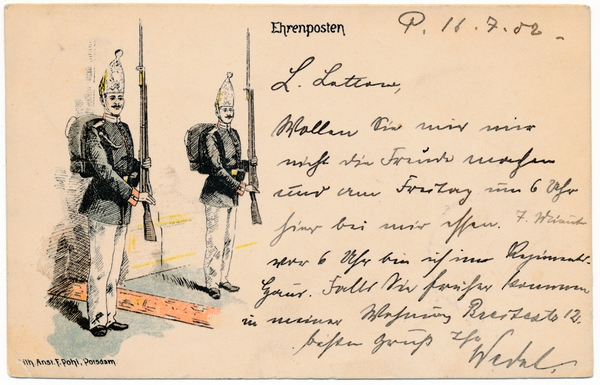 Ehrenposten
P. 16. 7. 02.
L. Lettow,
Wollen Sie mir nur
nicht die Freude machen
und am Freitag um 6 Uhr
hier bei mir essen. 7. Minut.
vor 6 Uhr bin ich im Regiments-
haus. Falls Sie früher kommen
in meiner Wohnung Breitestr 12.
besten Gruß Ihr
Wedel.
lith. Anst. F. Pohl, Potsdam